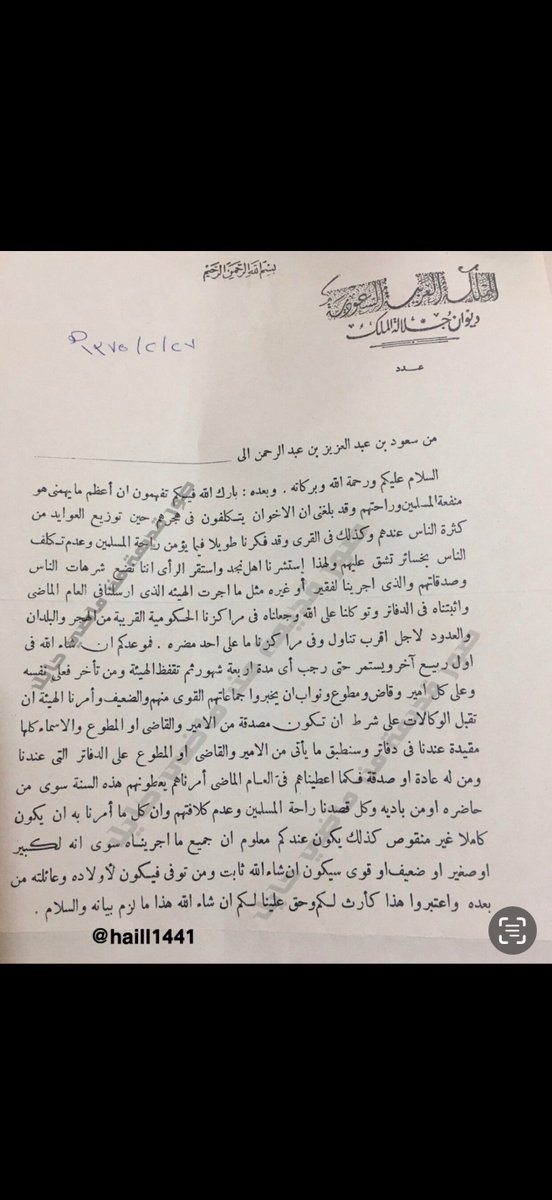 بسم الله الرحمن الرحيم
المملكة العربية السعودية
ديوان جلالة الملك
عدد
من سعود بن عبد العزيز بن عبد الرحمن الى
السلام عليكم ورحمة الله وبركاته . وبعده : بارك الله فيكم تفهمون ان أعظم ما يهمنى هو
منفعة المسلمين وراحتهم وقد بلغنى ان الاخوان يتكلفون فى هجرهم حين توزيع العوايد من
كثرة الناس عندهم وكذلك فى القرى وقد فكرنا طويلا فيما يؤمن راحة المسلمين وعدم تكلف
الناس بخسائر تشق عليهم ولهذا إستشرنا اهل نجد واستقر الرأى اننا نضع شرهات الناس
وصدقاتهم والذى اجرينا لفقير أو غيره مثل ما اجرت الهيئه الذى ارسلنا فى العام الماضى
واثبتناه فى الدفاتر وتوكلنا على الله وجعلناه فى مراكزنا الحكومية القريبة من الهجر والبلدان
والعدود لاجل اقرب تناول وفى مراكزنا ما على احد مضره . فموعدكم ان شاء الله فى
اول ربيع آخر ويستمر حتى رجب أى مدة اربعة شهور ثم تقفظ الهيئة ومن تأخر فعلى نفسه
وعلى كل امير وقاض ومطوع ونواب ان يخبروا جماعاتهم القوى منهم والضعيف وأمرنا الهيئة ان
تقبل الوكالات على شرط ان تكون مصدقة من الامير والقاضى او المطوع والاسماء كلها
مقيدة عندنا فى دفاتر وسنطبق ما يأتى من الامير والقاضى او المطوع على الدفاتر التى عندنا
ومن له عادة او صدقة فكما اعطيناهم فى العام الماضى أمرناهم يعطونهم هذه السنة سوى من
حاضره اومن باديه وكل قصدنا راحة المسلمين وعدم كلافتهم وان كل ما أمرنا به ان يكون
كاملا غير منقوص كذلك يكون عندكم معلوم ان جميع ما اجريناه سوى انه لكبير
اوصغير او ضعيف او قوى سيكون ان شاء الله ثابت ومن توفى فيكون لأولاده وعائلته من
بعده واعتبروا هذا كأرث لكم وحق علينا لكم ان شاء الله هذا ما لزم بيانه والسلام .
@haill1441